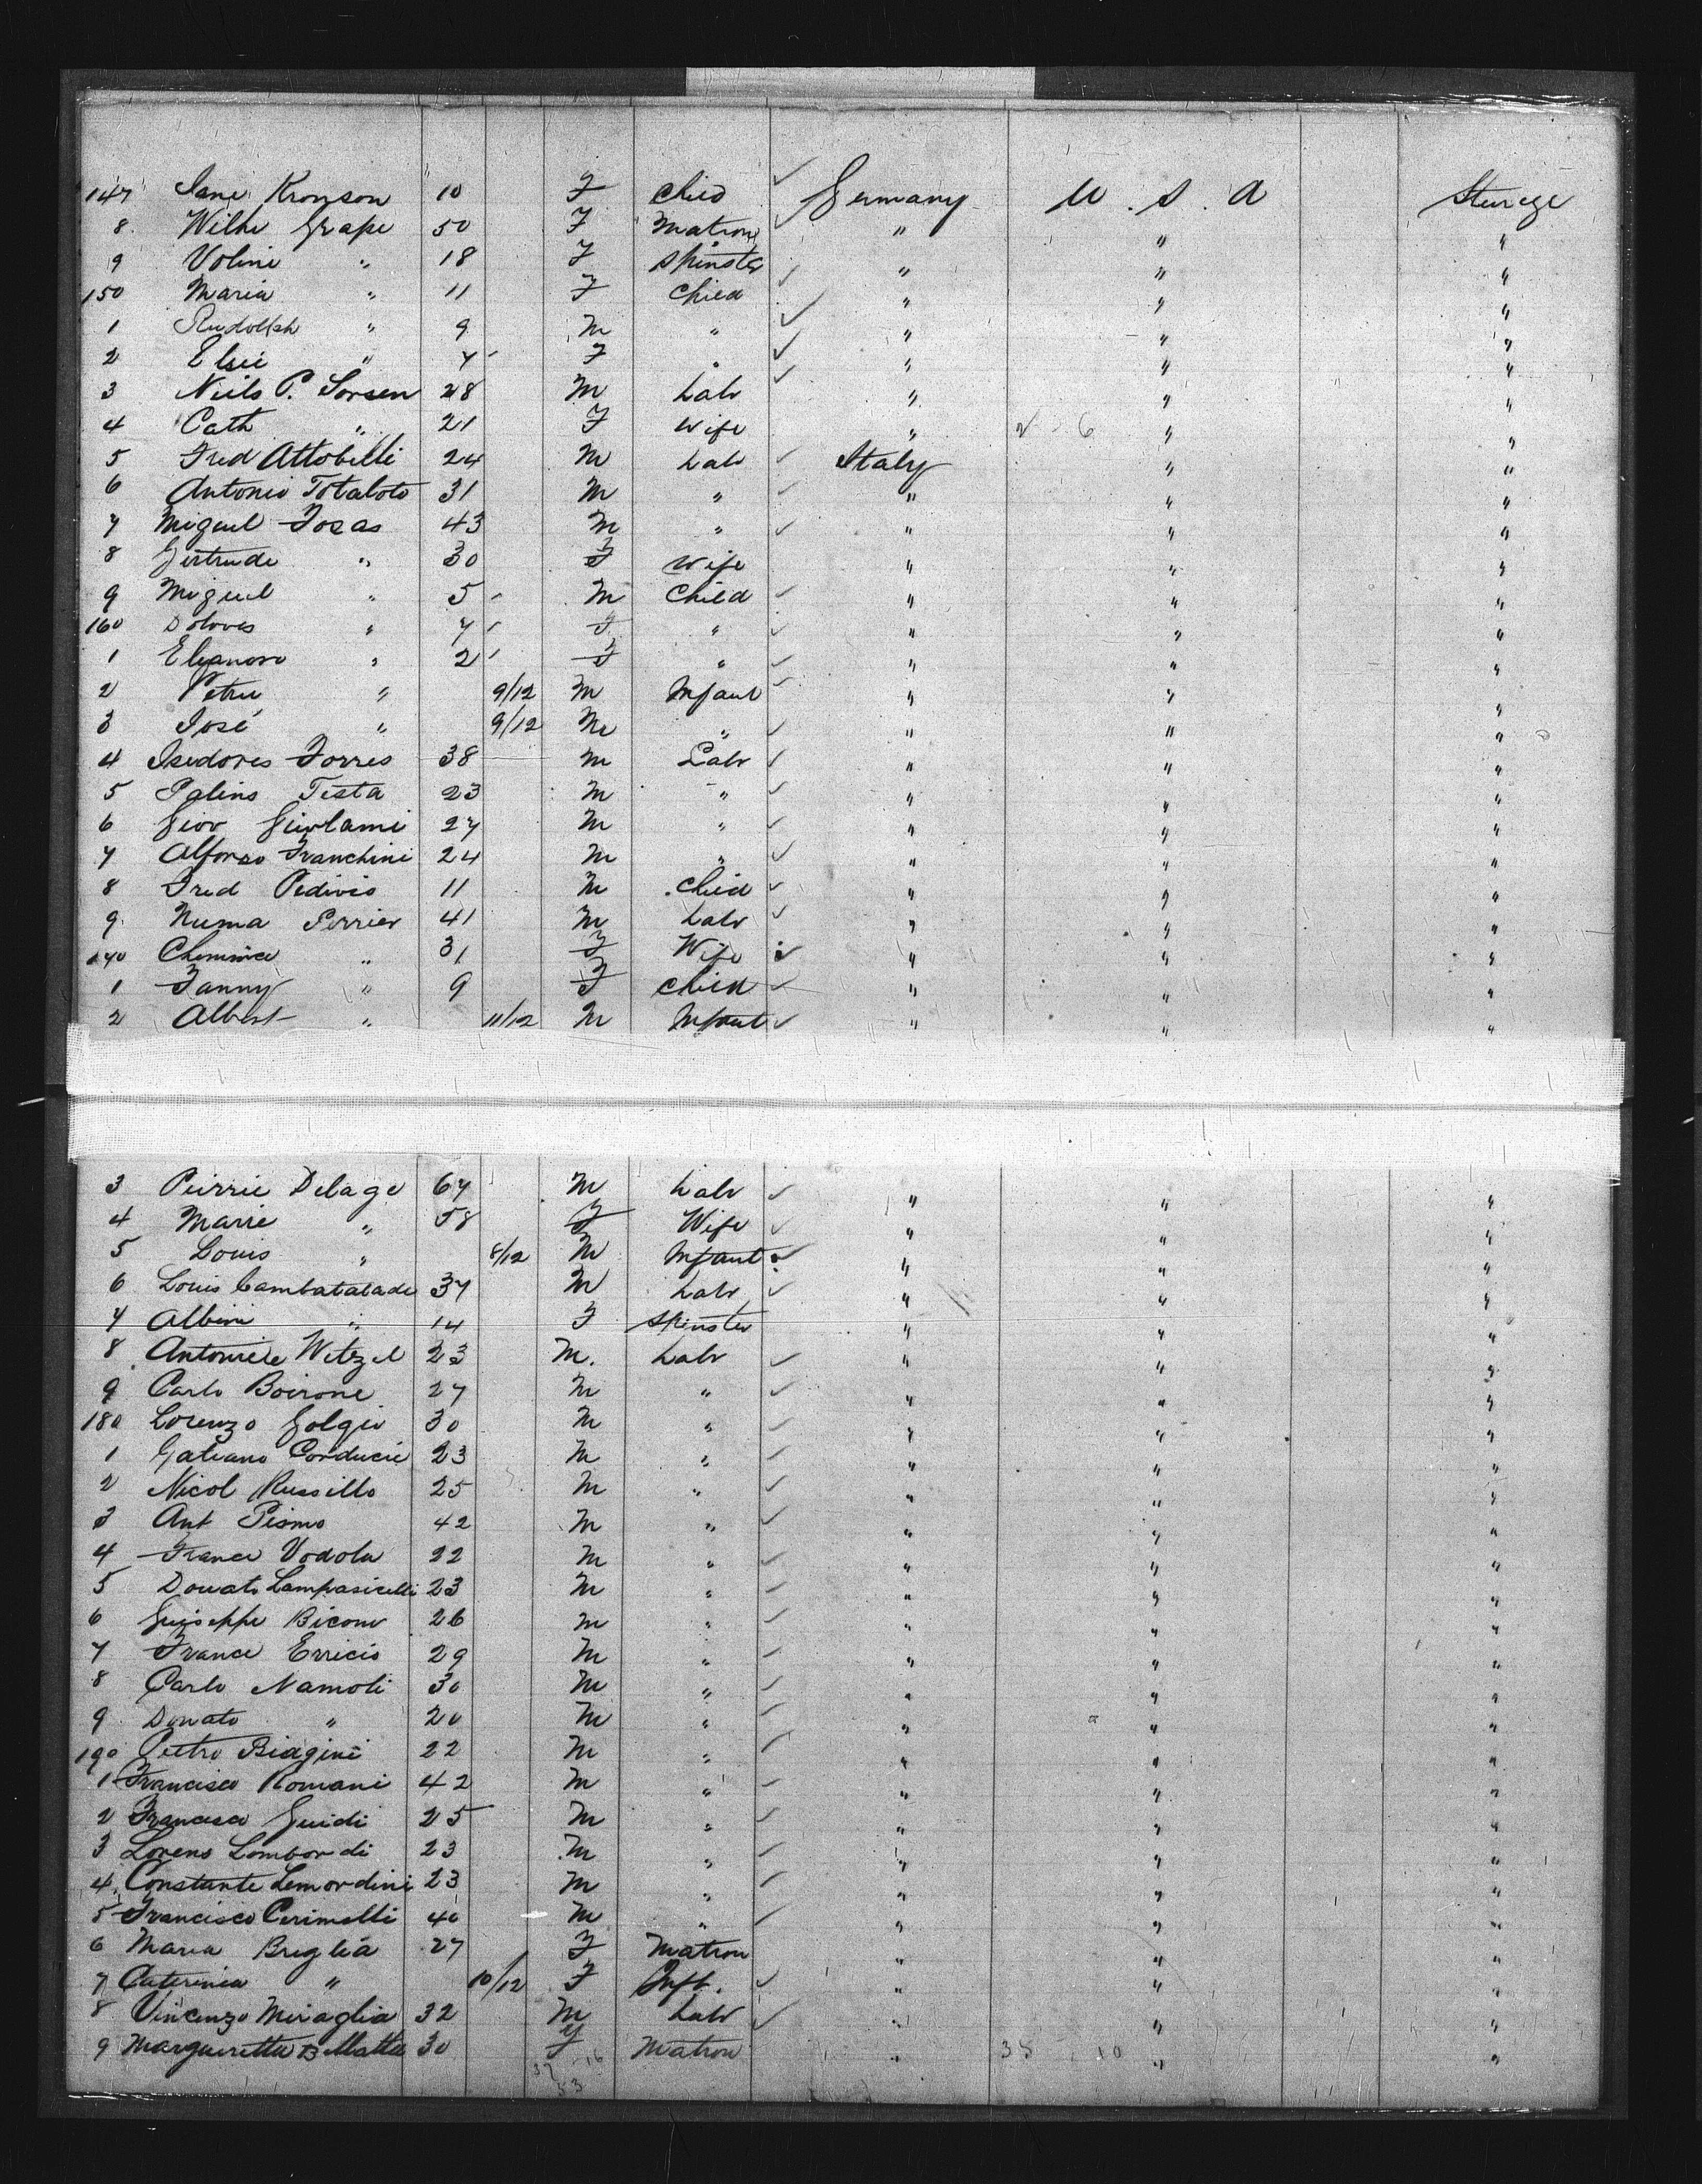 147 Jane Kronson 10 F Child Germany U.S.A Steerage
8 Wilhe Grape 50 F Matron " " "
9 Voline " 18 F Spinster " " "
150 Maria " 11 F Child " " "
1 Rudolph " 9 M " " " "
2 Elsie " 7 F " " " "
3 Niels P. Sorsen 28 M Labr " " "
4 Cath " 21 F Wife " 2 - 6 " "
5 Fred Attobelli 24 M Labr Italy " "
6 Antonio Totaloto 31 M " " " "
7 Miguel Fosas 43 M " " " "
8 Gertrude " 30 F Wife " " "
9 Miguel " 5 M Child " " "
160 Dolores " 7 F " " " "
1 Eleanoro " 2 F " " " "
2 Petru " 9/12 M Infant " " "
3 José " 9/12 M " " " "
4 Isedores Forres 38 M Labr " " "
5 Palins Testa 23 M " " " "
6 Giov Girolami 27 M " " " "
7 Alfonso Franchini 24 M " " " "
8 Fred Pedivis 11 M Child " " "
9 Numa Perrier 41 M Labr " " "
170 " 31 F Wife " " "
1 Fanny " 9 F Child " " "
2 Albert " 11/12 M Infant " " "
3 Peirrie Delage 67 M Labr " " "
4 Marie " 58 F Wife " " "
5 Louis " 8/12 M Infant " " "
6 Louis Cambatalade 37 M Labr " " "
7 Albini " 14 F Spinster " " "
8 Antoniele Witzel 23 M. Labr " " "
9 Carlo Boirone 27 M " " " "
180 Lorenzo Golgio 30 M " " " "
1 Gatiano Corducie 23 M " " " "
2 Nicol Russillo 25 M " " " "
3 Ant Pismo 42 M " " " "
4 France Vodola 22 M " " " "
5 Donato Lampasicelli 23 M " " " "
6 Guiseppe Bicone 26 M " " " "
7 France Erricio 29 M " " " "
8 Carlo Namoli 30 M " " " "
9 Donato " 20 M " " " "
190 Pietro Biagini 22 M " " " "
1 Francisco Romani 42 M " " " "
2 Francisco Guidi 25 M " " " "
3 Loreno Lombordi 23 M " " " "
4 Constante Lemordini 23 M " " " "
5 Francisco Cerimelli 40 M " " " "
6 Maria Breglia 27 F Matron " " "
7 Caterinia " 10/12 F Inft. " " "
8 Vincenzo Miraglia 32 M Labr " " "
9 Margueretta B Matta 30 F Matron " 35 10 " "
37 16
53